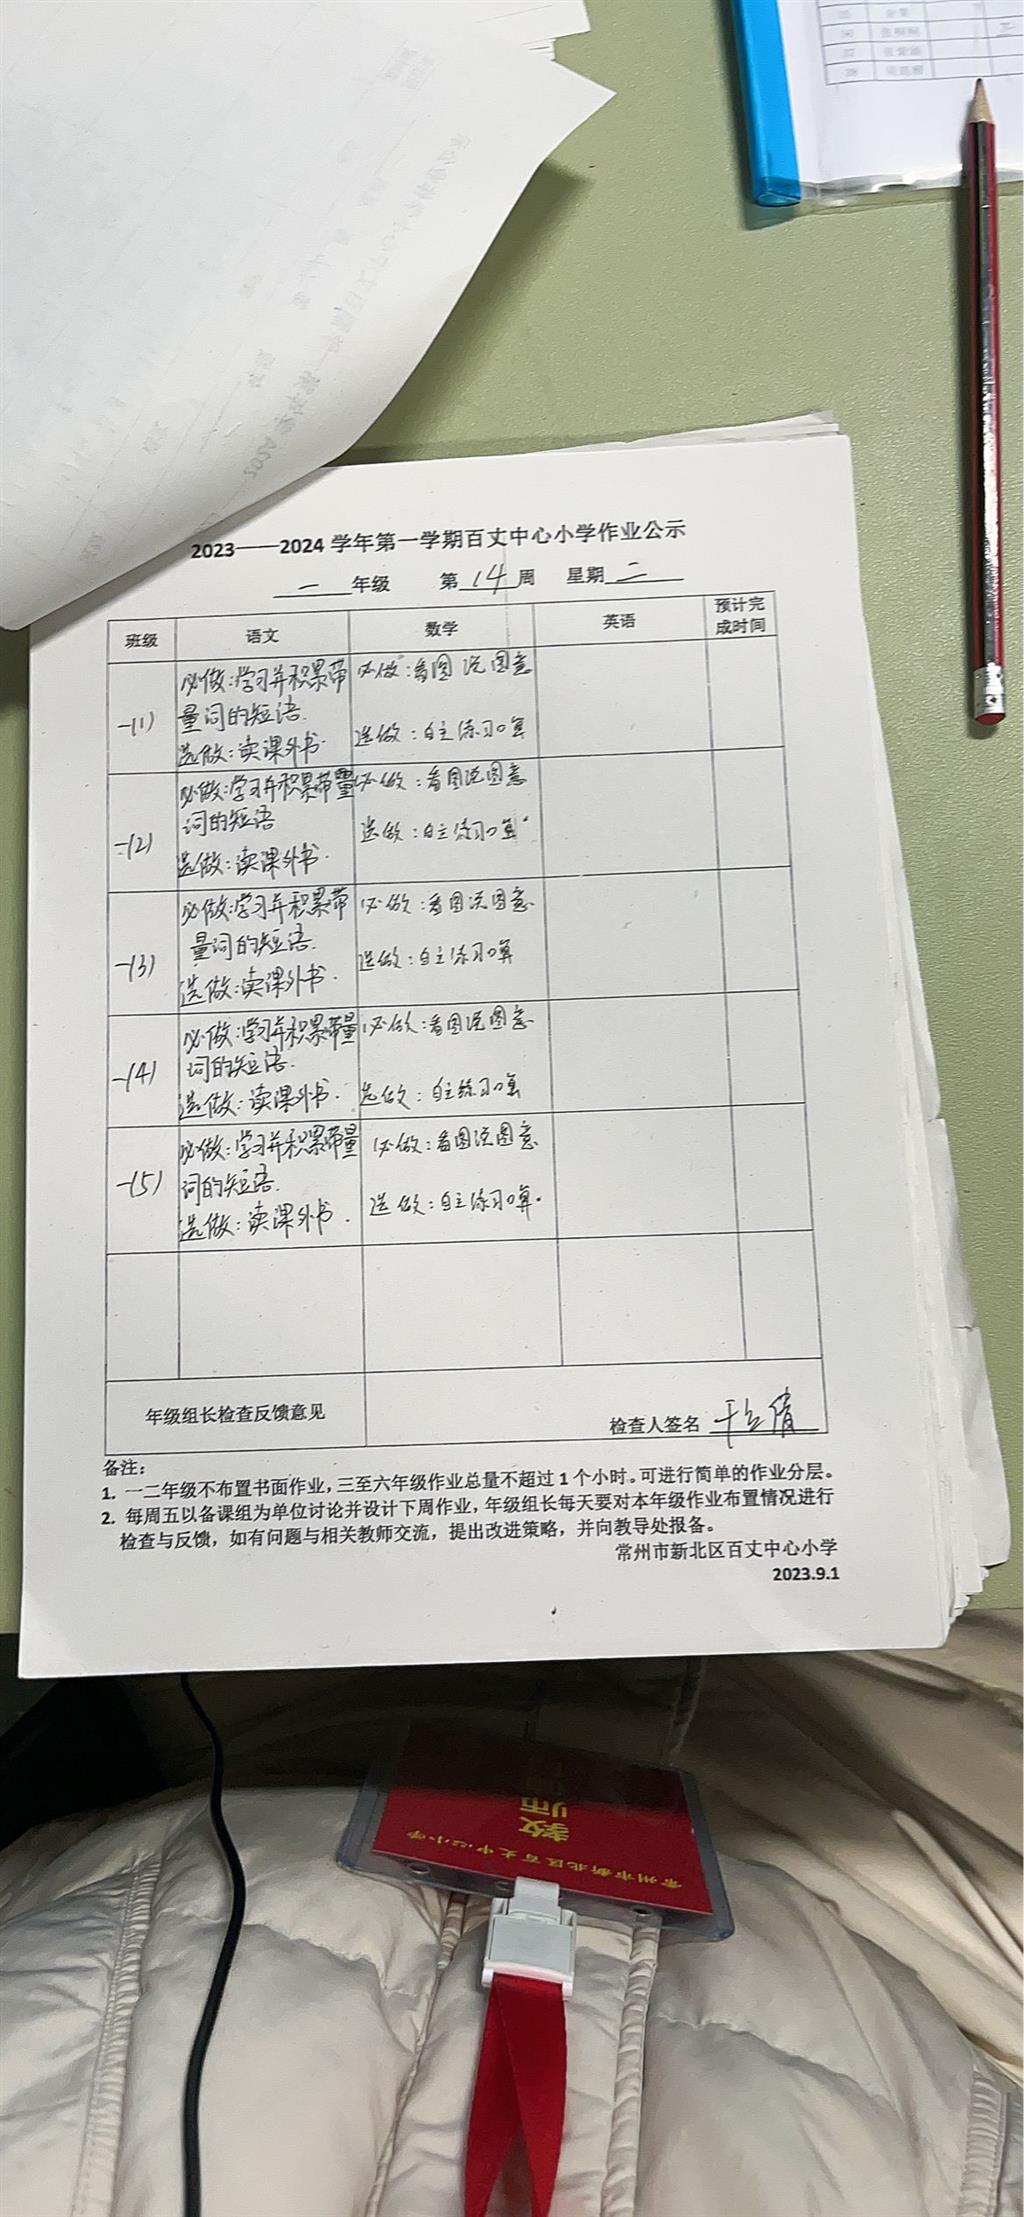 2023——2024 学年第一学期百丈中心小学作业公示
一 年级 第 14 周 星期 二
班级 语文 数学 英语 预计完成时间
一(1)
必做:学习并积累带
量词的短语.
选做:读课外书.
必做:看图说图意
选做:自主练习口算
一(2)
必做:学习并积累带量
词的短语
选做:读课外书.
必做:看图说图意
选做:自主练习口算.
一(3)
必做:学习并积累带
量词的短语.
选做:读课外书.
必做:看图说图意
选做:自主练习口算
一(4)
必做:学习并积累带量
词的短语.
选做:读课外书.
必做:看图说图意
选做:自主练习口算
一(5)
必做:学习并积累带量
词的短语.
选做:读课外书.
必做:看图说图意
选做:自主练习口算.
年级组长检查反馈意见
检查人签名
备注:
1. 一二年级不布置书面作业,三至六年级作业总量不超过 1 个小时。可进行简单的作业分层。
2. 每周五以备课组为单位讨论并设计下周作业,年级组长每天要对本年级作业布置情况进行
检查与反馈,如有问题与相关教师交流,提出改进策略,并向教导处报备。
常州市新北区百丈中心小学
2023.9.1
教师
常州市新北区百丈中心小学